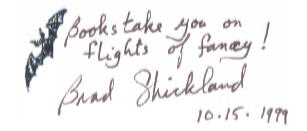 Books take you on
flights of fancy!
Brad Strickland
10.15.1999